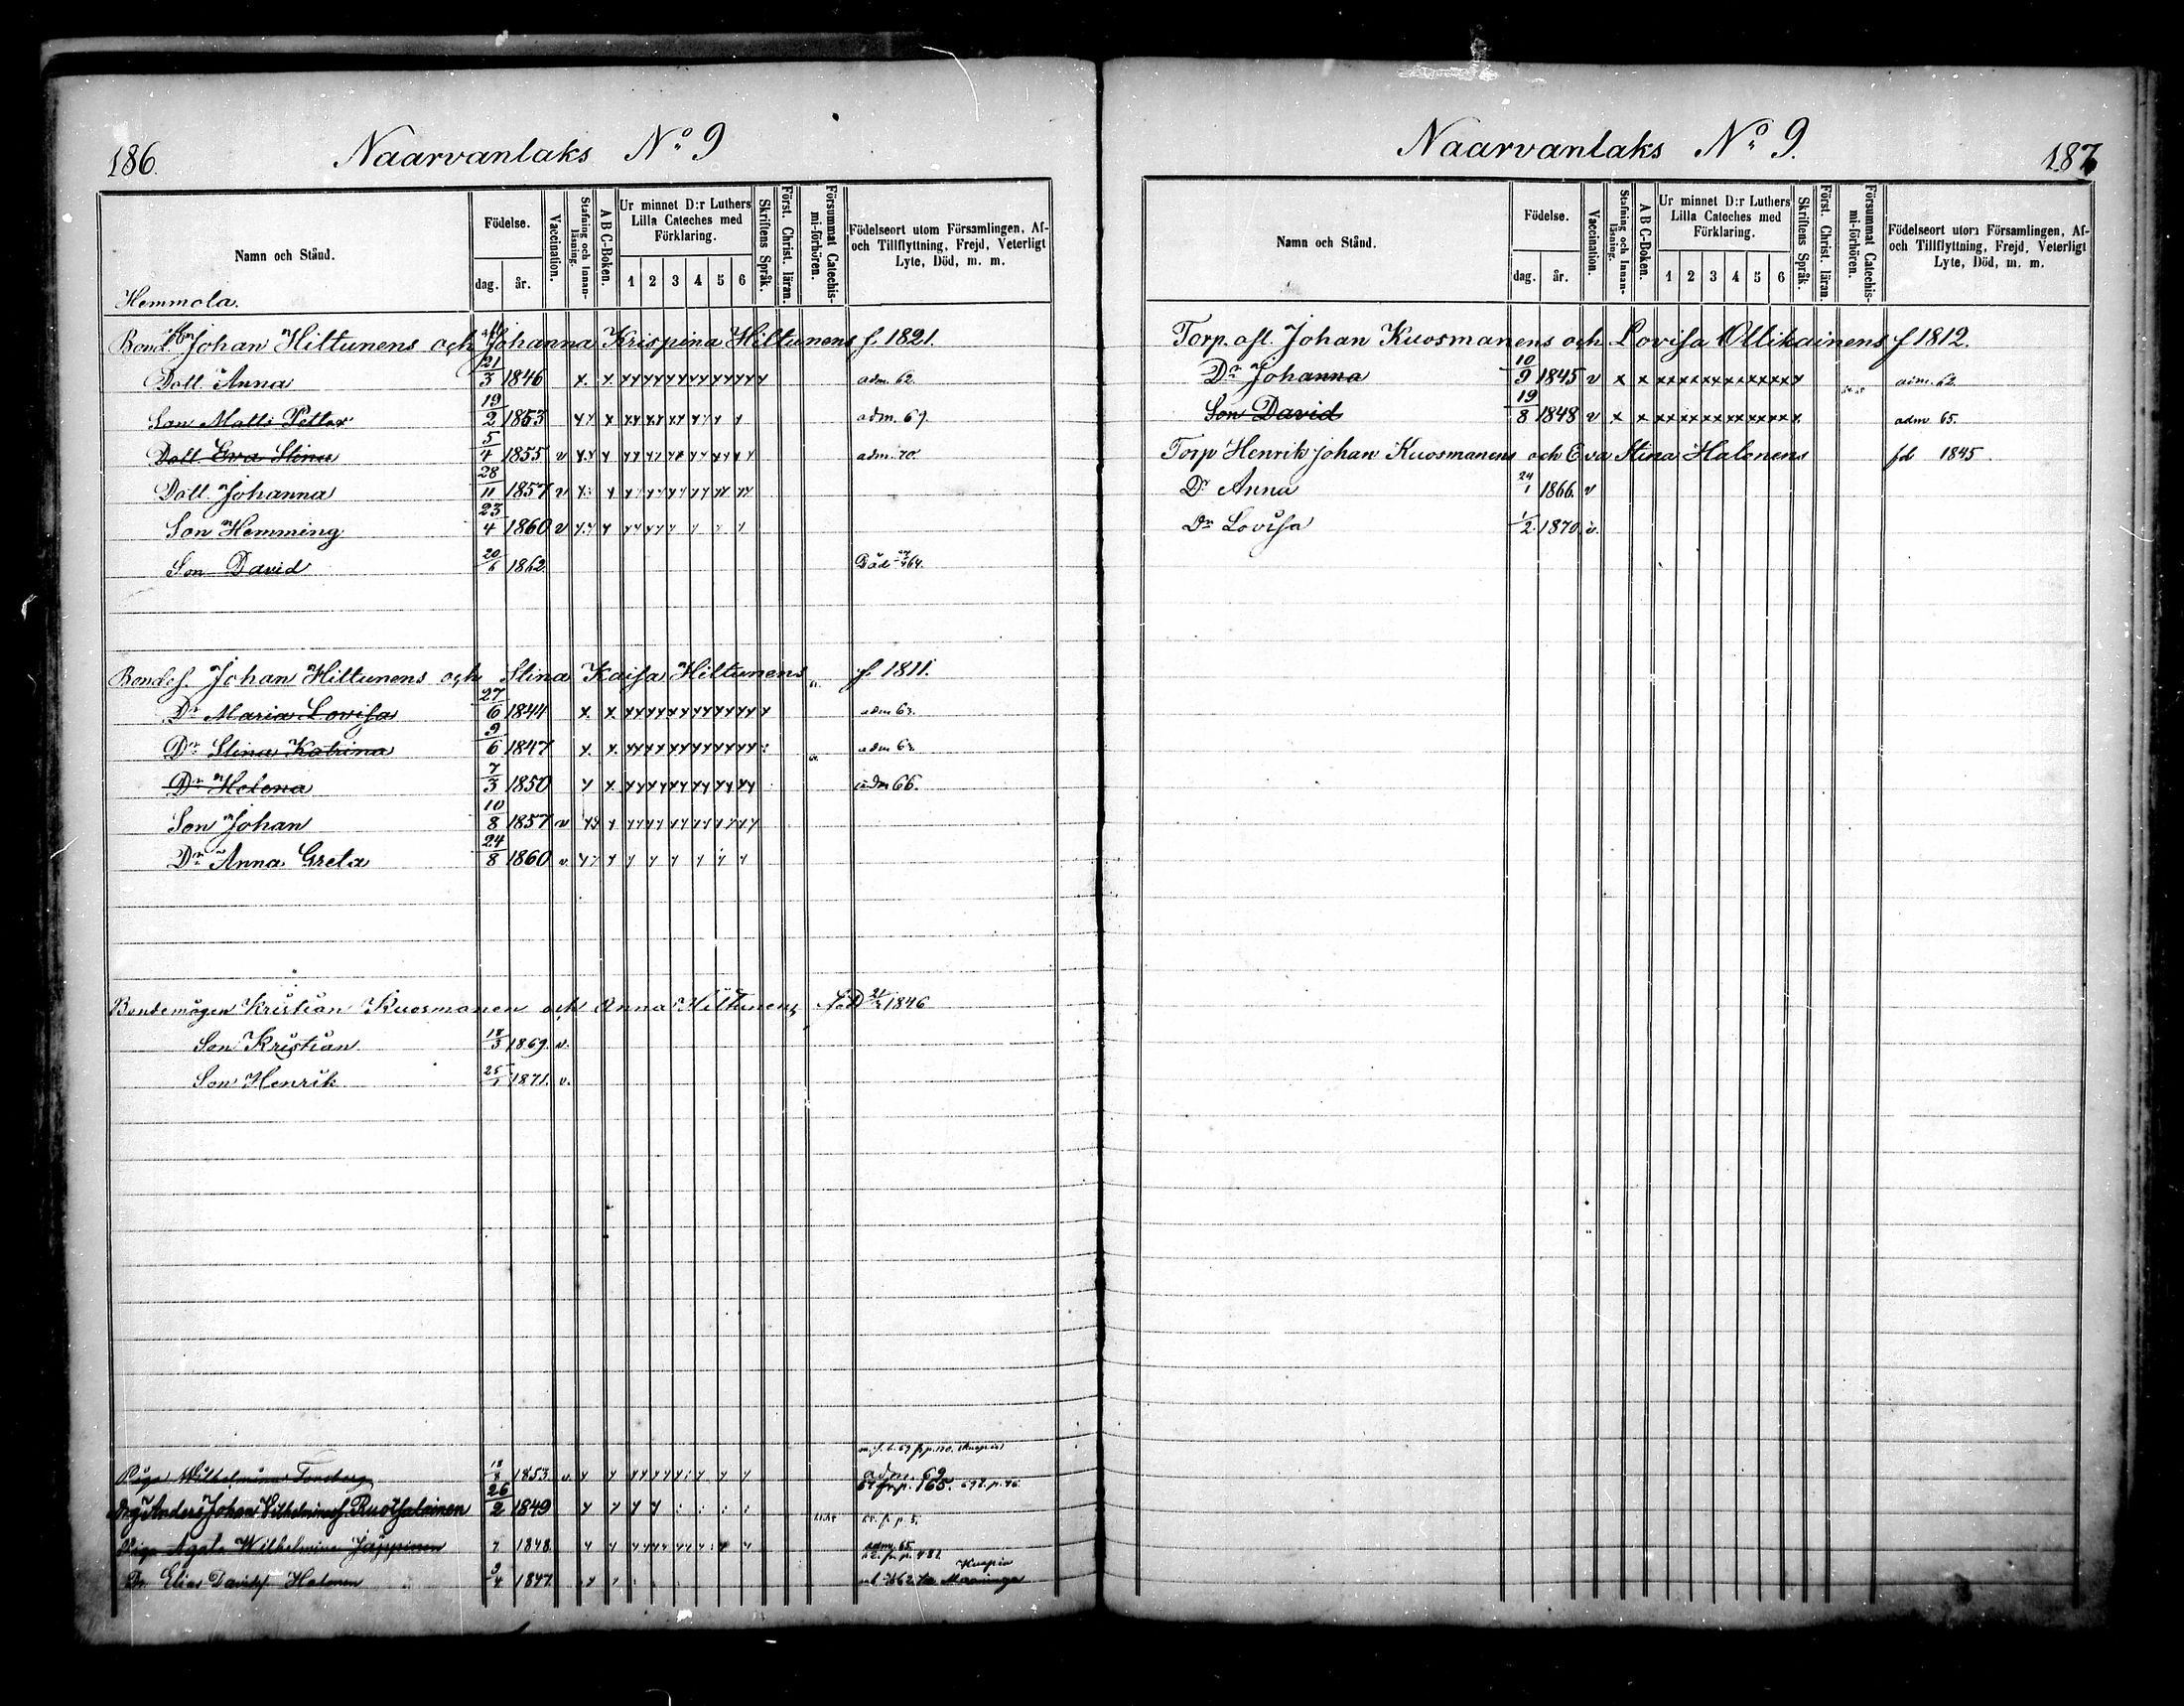 186.
Naarvanlaks No 9
Namn och Stånd.
Födelse.
dag. år.
Vaccination.
Stafning och Innanläsning.
A B C-Boken.
Ur minnet D:r Luthers Lilla Cateches med Förklaring.
1 2 3 4 5 6
Skriftens Språk.
Först. Christ. läran.
Försummat Catechismi-förhören.
Födelseort utom Församlingen, Af- och Tillflyttning, Frejd, Veterligt Lyte, Död, m. m.
Hemmola.
Johan Hiltunens och Johanna Krispina Hiltunens f. 1821.
Dott. Anna 21/3 1846 x. x xx xx xx xx xx xx x adm. 62.
Son Matts Petter 19/2 1853 adm. 69.
Dott. Eva Stina 5/4 1855 v adm. 70.
Dott. Johanna 28/11 1857 v
Son Hemming 23/4 1860 v
Son David 20/6 1862. Död 64.
Bondes. Johan Hiltunens och Stina Kaisa Hiltunens f. 1811.
Dr Maria Lovisa 27/6 1844 x. x. adm 63.
Dr Stina Katrina 9/6 1847 x. x. adm 63.
Dr Helena 7/3 1850 adm 66.
Son Johan 10/8 1857 v
Dr Anna Greta 24/8 1860 v
Bondemågen Kristian Kuosmanen och Anna Hiltunens föD 21/3 1846
Son Kristian 18/3 1869. v.
Son Henrik 25/1 1871. v.
Piga Wilhelmina Forsberg 18/8 1853 v adm. 69
Drg Anders Johan Wilhelminas. Ruotsalainen 26/2 1849 64 fr p. 165.
Piga Agata Wilhelmina Jäppinen 1848 adm. 65
Dr. Elias Davids. Halonen 9/4 1847 Kuopio
Maaninga
Naarvanlaks No 9.
187
Namn och Stånd.
Födelse.
dag. år.
Vaccination.
Stafning och Innanläsning.
A B C-Boken.
Ur minnet D:r Luthers Lilla Cateches med Förklaring.
1 2 3 4 5 6
Skriftens Språk.
Först. Christ. läran.
Försummat Catechismi-förhören.
Födelseort utom Församlingen, Af- och Tillflyttning, Frejd, Veterligt Lyte, Död, m. m.
Torp. afl. Johan Kuosmanens och Lovisa Ollikainens f 1812.
Dr Johanna 10/9 1845 v x x xx xx xx xx xx xx x adm. 62.
Son David 19/8 1848 v x x xx xx xx xx xx xx x. adm 65.
Torp Henrik Johan Kuosmanens och Eva Stina Halonens fd 1845.
Dr Anna 24/1 1866. v
Dr Lovisa 1/2 1870. v.